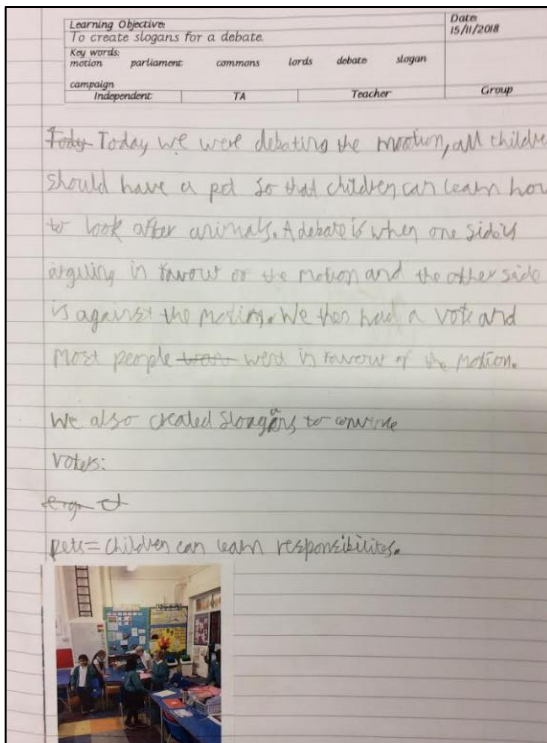 Learning Objective:
To create slogans for a debate.
Date:
15/11/2018
Key words:
motion parliament commons lords debate slogan
campaign
Independent TA Teacher Group
Today we were debating the mootion, all childre
should have a pet so that children can learn how
to look after animals. A debate is when one side is
argueing in favour of the motion and the other side
is against the motion. We then had a vote and
most people went in favour of the motion.
We also created Sloagans to convince
voters:
e.g.
pets = children can learn responsibilites.